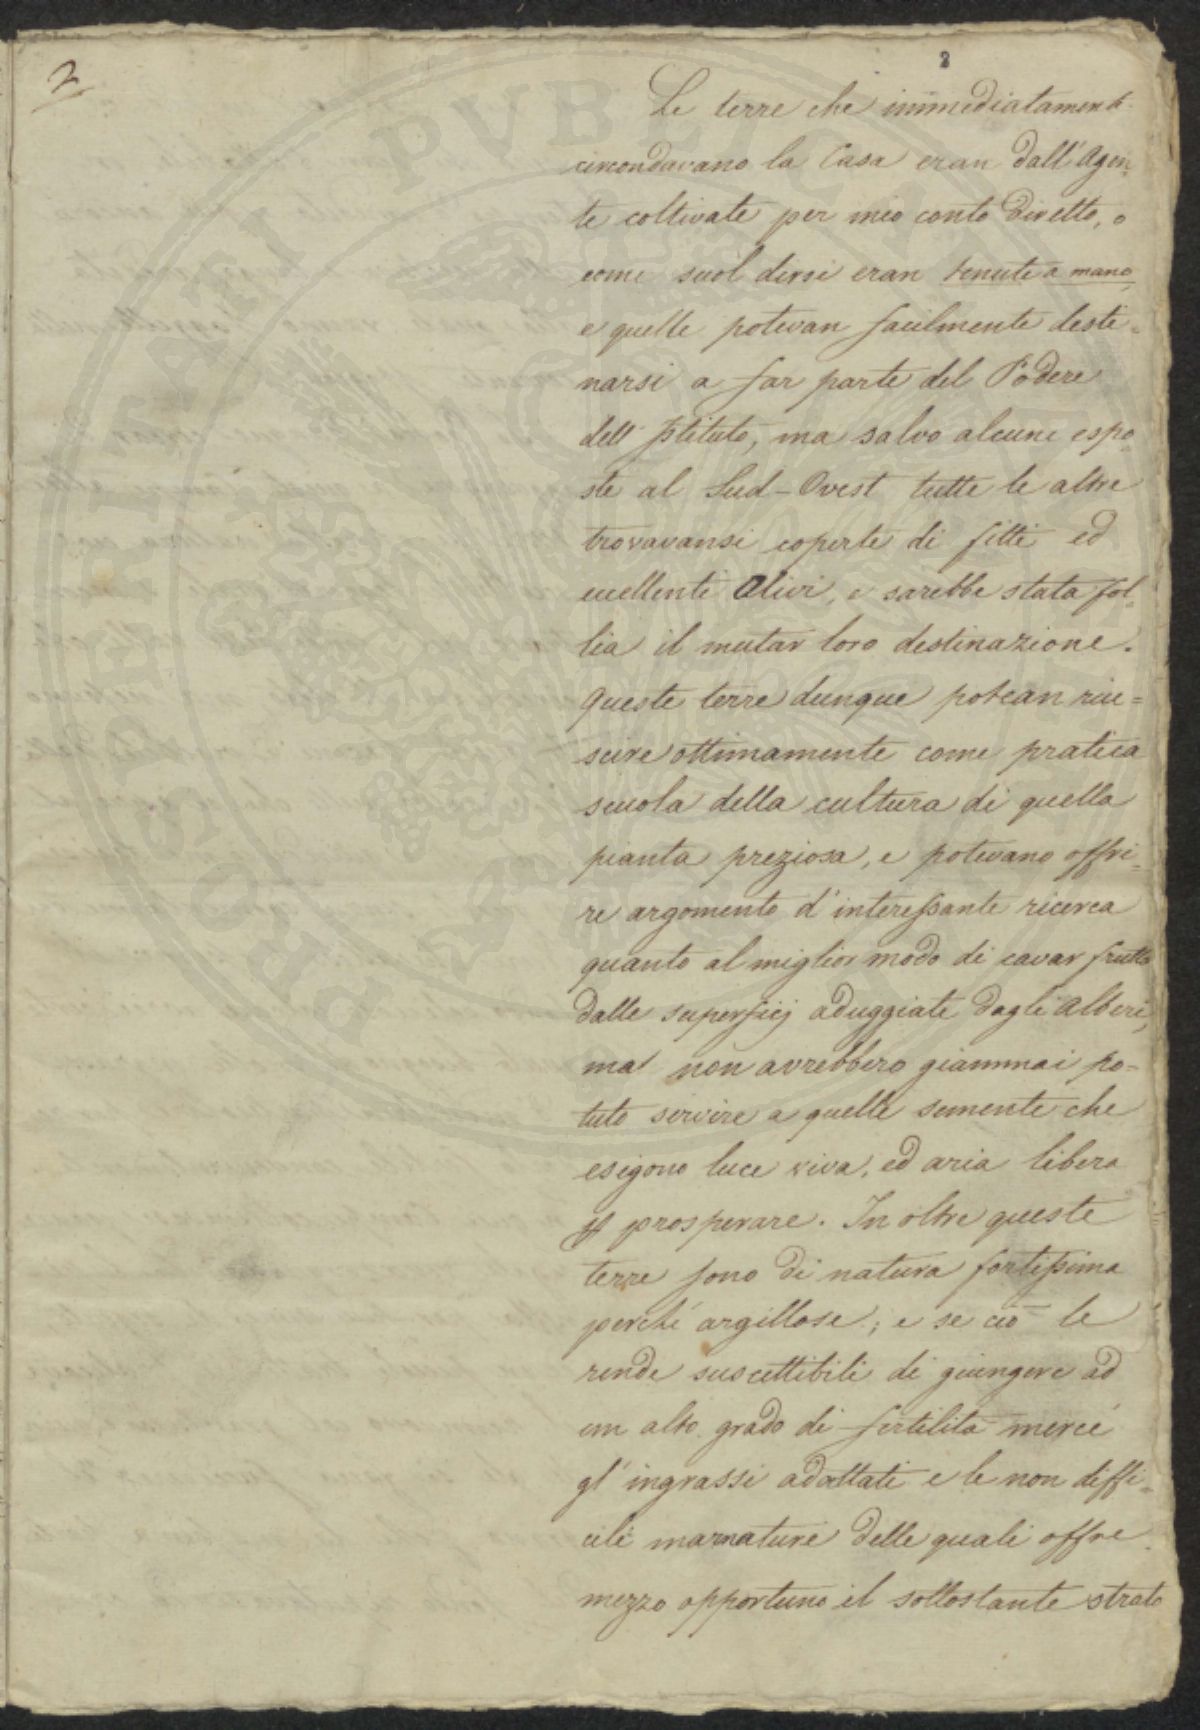 2
2
Le terre che immediatamente
circondavano la Casa eran dall'Agen
te coltivate per mio conto diretto, o
come suol dirsi eran tenute a mano,
e quelle potevan facilmente desti=
narsi a far parte del Podere
dell'Istituto, ma salvo alcune espo
ste al Sud-Ovest tutte le altre
trovavansi coperte di fitti ed
eccellenti Olivi, e sarebbe stata fol=
lia il mutar loro destinazione.
Queste terre dunque potean riu=
scire ottimamente come pratica
scuola della cultura di quella
pianta preziosa, e potevano offri=
re argomento d'interessante ricerca
quanto al miglior modo di cavar frutto
dalle superficj aduggiate dagli alberi,
ma non avrebbero giammai po=
tuto servire a quelle semente che
esigono luce viva, ed aria libera
p prosperare. In oltre queste
terre sono di natura fortissima
perché argillose; e se ciò le
rende suscettibili di giungere ad
un alto grado di fertilità mercé
gl'ingrassi adattati e le non diffi=
cili marnature delle quali offre
mezzo opportuno il sottostante strato
PROSPERITATI PVBLICAE